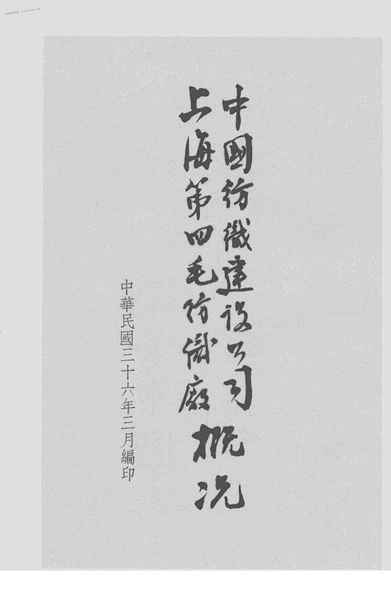 中國紡織建設公司
上海第四毛紡織廠
概况
中華民國三十六年三月編印